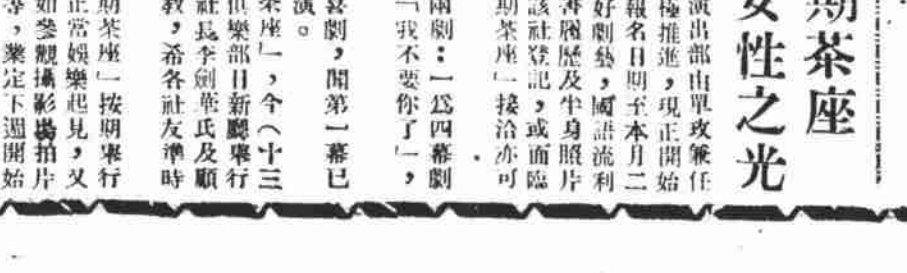 期茶座
女性之光
演出部由單玫兼任
極推進，現正開始
報名日期至本月二
好劇藝，國語流利
書履歷及半身照片
該社登記，或面臨
期茶座」接洽亦可
兩劇：一爲四幕劇
「我不要你了」，
喜劇，聞第一幕已
演。
茶座」，今（十三
俱樂部日新廳舉行
社長李劍華氏及顧
教，希各社友準時
期茶座」按期舉行
正常娛樂起見，又
如參觀攝影場拍片
等，業定下週開始